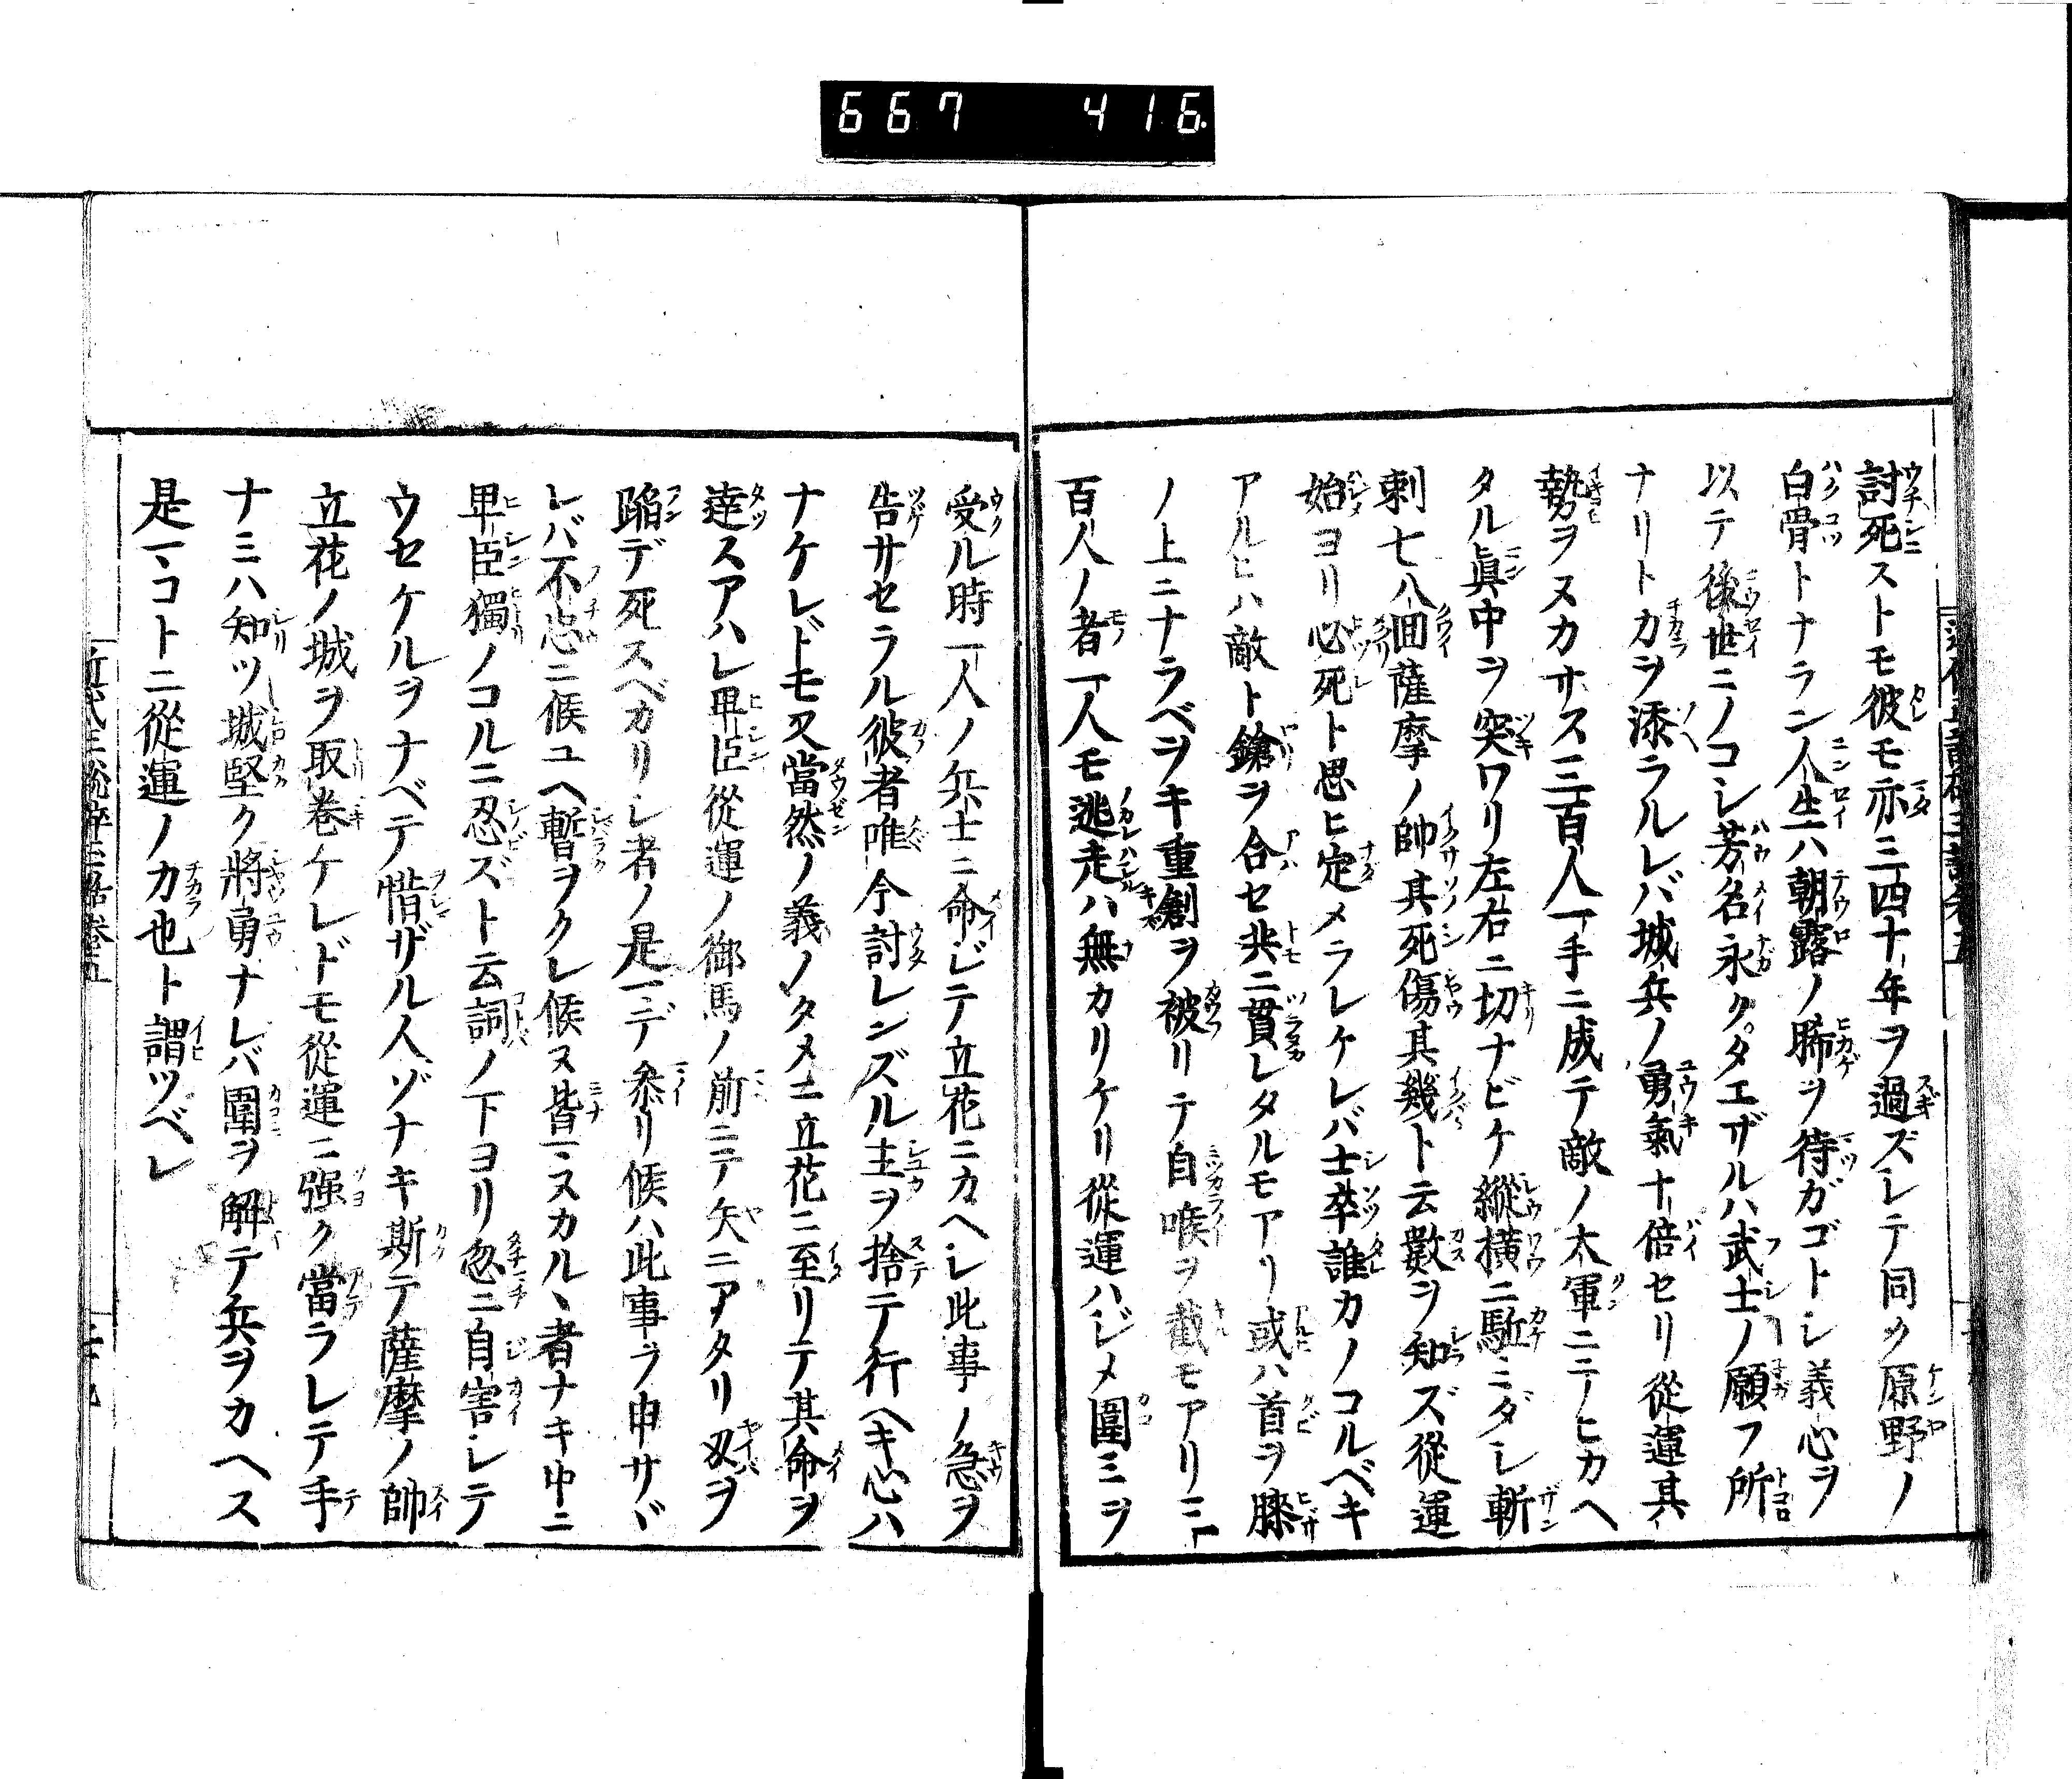 667 416
討死ストモ彼モ亦三四十年ヲ過ズシテ同ク原野ノ
白骨トナラン人生ハ朝露ノ晞ヲ待ガゴトシ義心ヲ
以テ後世ニノコシ芳名永クタエザルハ武士ノ願フ所
ナリトカヲ添ラルレバ城兵ノ勇氣十倍セリ從運其
勢ヲヌカサス三百人一手ニ成テ敵ノ大軍ニニノヒカヘ
タル眞中ヲ突ワリ左右ニ切ナビケ縱横ニ駈ミダシ斬
刺七八囬薩摩ノ帥其死傷其幾ト云數ヲ知ズ從運
始ヨリ必死ト思ヒ定メラレケレバ士卒誰カノコルベキ
アルヒハ敵ト鎗ヲ合セ共ニ貫レタルモアリ或ハ首ヲ膝
ノ上ニナラベヲキ重創ヲ被リテ自喉ヲ截モアリ三
百人ノ者一人モ逃走ハ無カリケリ從運ハジメ圍ミヲ
受ル時一人ノ兵士ニ命ジテ立花ニカヘシ此事ノ急ヲ
告サセラル彼者唯今討レンズル主ヲ捨テ行ヘキ心ハ
ナケレドモ又當然ノ義ノタメニ立花ニ至リテ其命ヲ
達スアハレ卑臣從運ノ御馬ノ前ニテ矢ニアタリ刄ヲ
蹈デ死スベカリシ者ノ是マデ叅リ候ハ此事ヲ申サヾ
レバ不忠ニ候ユヘ暫ヲクレ候ヌ皆マヌカルヽ者ナキ中ニ
卑臣獨ノコルニ忍ズト云詞ノ下ヨリ忽ニ自害シテ
ウセケルヲナベテ惜ザル人ゾナキ斯テ薩摩ノ帥
立花ノ城ヲ取巻ケレドモ從運ニ强ク當ラレテ手
ナミハ知ツ城堅ク將勇ナレバ圍ヲ解テ兵ヲカヘス
是マコトニ從運ノカ也ト謂ツベシ